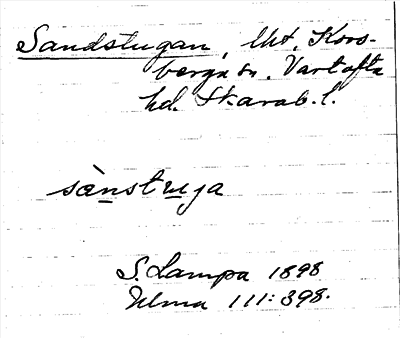 Sandstugan, lht, Kors-
berga sn. Vartofta
hd. Skarab. l.
sànstruga
S. Lampa 1898
Ulma 111:398.